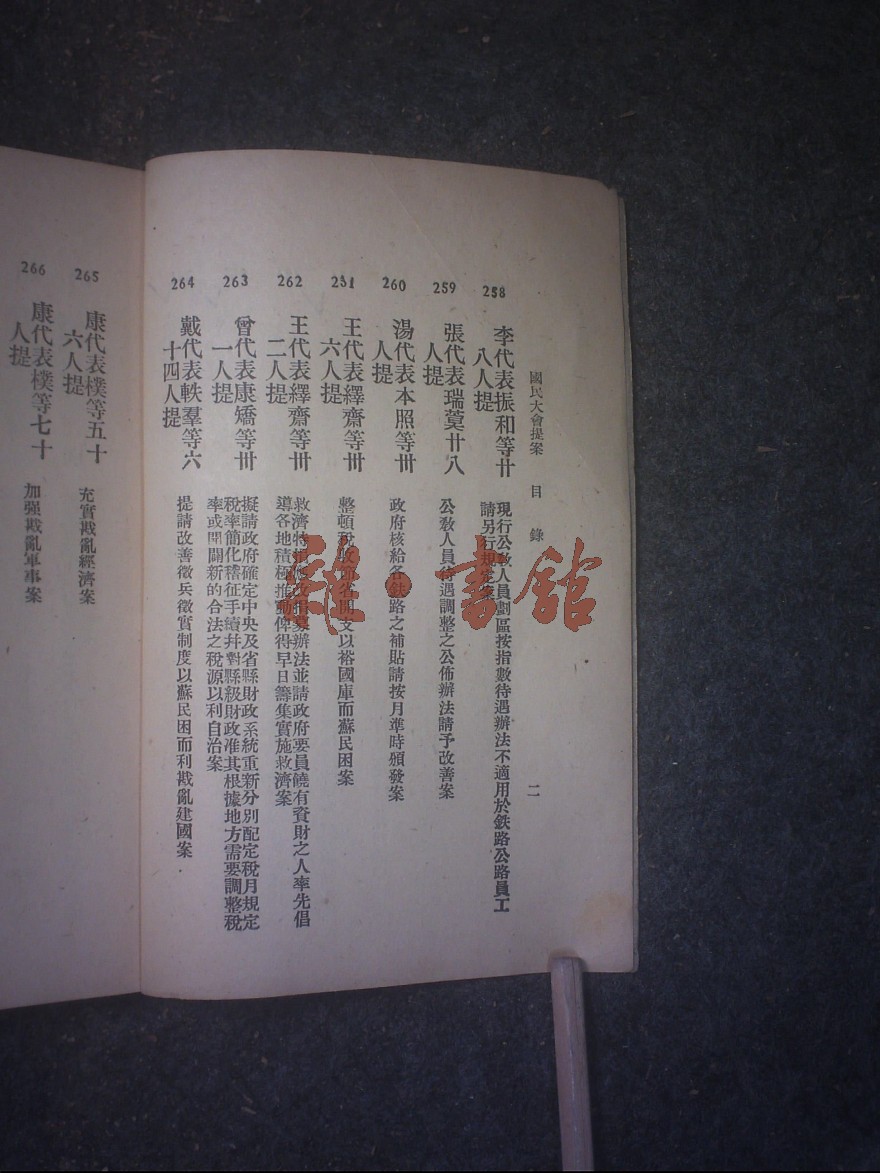 國民大會提案 目錄 二
258
李代表振和等廿
八人提
現行公敎人員劃區按指數待遇辦法不適用於鉄路公路員工
請另行規定案
259
張代表瑞蓂廿八
人提
公敎人員待遇調整之公佈辦法請予改善案
260
湯代表本照等卅
人提
政府核給各鉄路之補貼請按月準時頒發案
231
王代表繹齋等卅
六人提
整頓稅收節省開支以裕國庫而蘇民困案
262
王代表繹齋等卅
二人提
救濟特捐 改捐募辦法並請政府要員饒有資財之人率先倡
導各地積極推動俾得早日籌集實施救濟案
263
曾代表康矯等卅
一人提
擬請政府確定中央及省縣財政系統重新分別配定稅月規定
稅率簡化稽征手續幷對縣級財政准其根據地方需要調整稅
率或開闢新的合法之稅源以利自治案
264
戴代表軼羣等六
十四人提
提請改善徵兵徵實制度以蘇民困而利戡亂建國案
265
康代表樸等五十
六人提
充實戡亂經濟案
266
康代表樸等七十
人提
加强戡亂軍事案
雜·書館